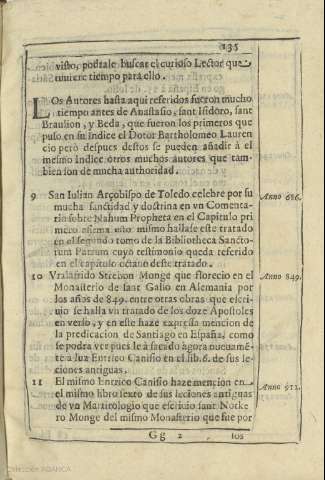 135
visto, podrale buscar el curioso Lector que
tuuiere tiempo para ello.
LOs Autores hasta aqui referidos fueron mucho
tiempo antes de Anastasio, sant Isidoro, sant
Braulion, y Beda, que fueron los primeros que
puso en su indice el Dotor Bartholomeo Lauren
cio pero despues destos se pueden añadir à el
mesmo Indice otros muchos autores que tam-
bien son de mucha authoridad.
9 San Iulian Arçobispo de Toledo celebre por su Anno 686.
mucha sanctidad y doctrina en vn Comenta-
rio sobre Nahum Propheta en el Capitulo pri
mero afirma esto mismo hallase este tratado
en el segundo tomo de la Bibliotheca Sancto-
rum Patrum cuyo testimonio queda referido
en el capitulo octauo deste tratado.
10 Vralafrido Strebon Monge que florecio en el Anno 849.
Monasterio de sant Galio en Alemania por
los años de 849. entre otras obras que escri-
uio se halla vn tratado de los doze Apostoles
en verso, y en este haze expressa mencion de
la predicacion de Santiago en España, como
se podra ver pues le à sacado àgora nueuamē-
te a luz Enrico Canisio en el lib. 6. de sus le-
ciones antiguas.
11 El mismo Enrico Canisio haze mencion en Anno 912.
el mismo libro sexto de sus leciones antiguas
de vn Martirologio que escriuio sant Notke
ro Monge del mismo Monasterio que fue por
Gg 2 los